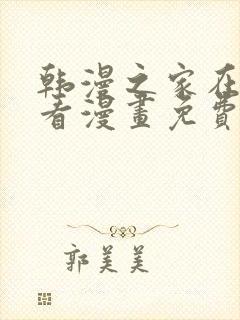 韩漫之家在
看漫畫免費
郭美美